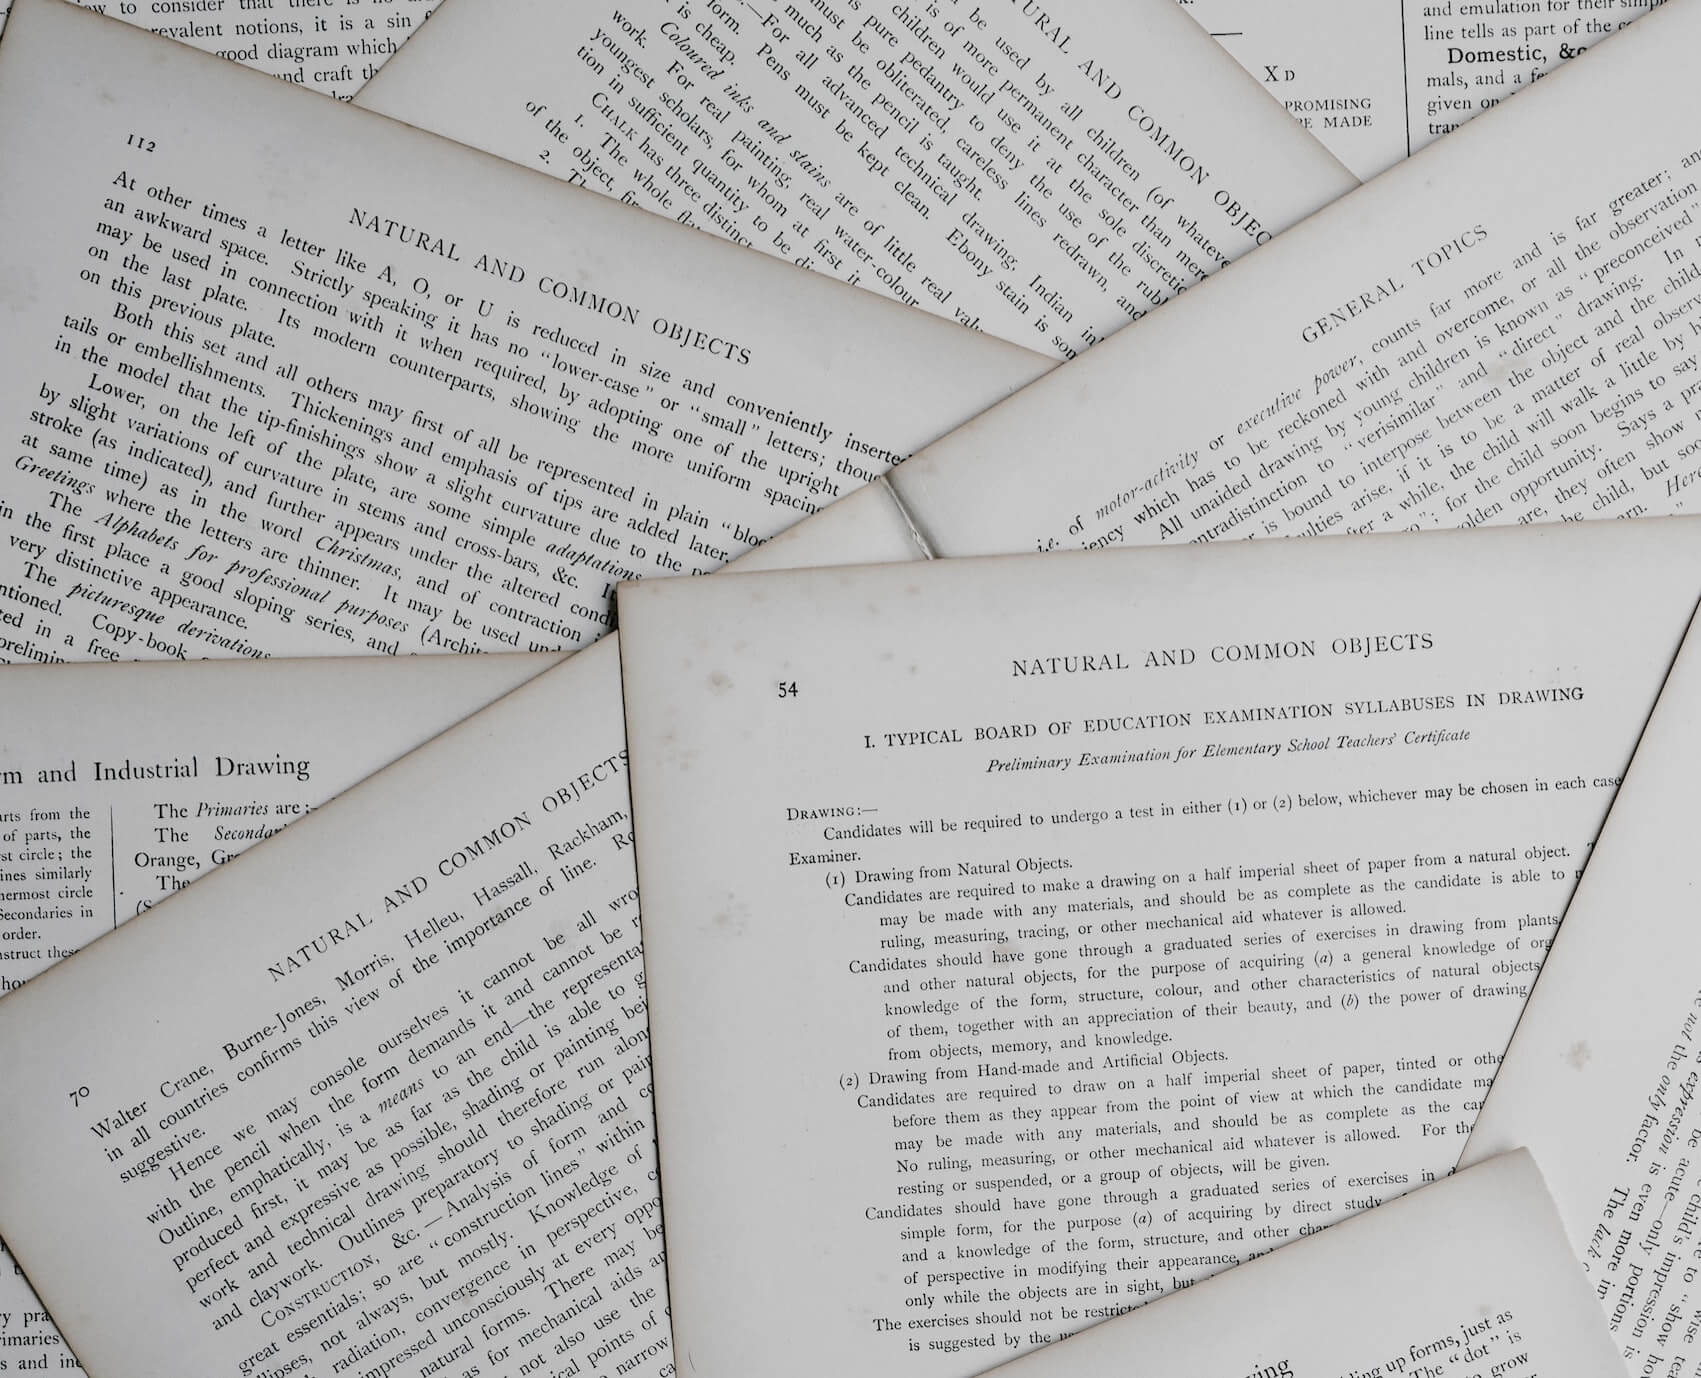 to consider that there is no
prevalent notions, it is a sin
good diagram which
and craft
112
NATURAL AND COMMON OBJECTS
At other times a letter like A, O, or U is reduced in size and conveniently inserted
an awkward space. Strictly speaking it has no "lower-case" or "small" letters; though
may be used in connection with it when required, by adopting one of the upright
on the last plate. Its modern counterparts, showing the more uniform spacing
on this previous plate.
Both this set and all others may first of all be represented in plain "bloc
tails or embellishments. Thickenings and emphasis of tips are added later,
in the model that the tip-finishings show a slight curvature due to the
Lower, on the left of the plate, are some simple adaptations
by slight variations of curvature in stems and cross-bars, &c.
stroke (as indicated), and further appears under the altered cond
at same time) as in the word Christmas, and of contraction
Greetings where the letters are thinner. It may be used und
The Alphabets for professional purposes (Archite
in the first place a good sloping series, and
very distinctive appearance.
The picturesque derivations
ntioned. Copy-book
ted in a free
prelimin
NATURAL AND COMMON OBJEC
be used by all children (of whateve
is of more permanent character than mere
children would use it at the sole discretio
is pure pedantry to deny the use of the rubb
must be obliterated, careless lines redrawn, and
much as the pencil is taught.
—For all advanced technical drawing, Indian in
form. Pens must be kept clean. Ebony stain is som
is cheap.
Coloured inks and stains are of little real val
work. For real painting, real water-colour
youngest scholars, for whom at first it
tion in sufficient quantity to be di
CHALK has three distinct
1. The whole fla
of the object, fir
2. Th
XD
PROMISING
MADE
and emulation for their simpl
line tells as part of the
Domestic, &c
mals, and a fe
given on
tran
GENERAL TOPICS
i.e. of motor-activity or executive power, counts far more and is far greater; and
iency which has to be reckoned with and overcome, or all the observation
All unaided drawing by young children is known as "preconceived"
ntradistinction to "verisimilar" and "direct" drawing. In
er is bound to interpose between the object and the child
ulties arise, if it is to be a matter of real observ
fter a while, the child will walk a little by h
"; for the child soon begins to say
olden opportunity. Says a pra
are, they often show
he child, but soo
arn." Here
rm and Industrial Drawing
arts from the
of parts, the
st circle; the
ines similarly
nermost circle
Secondaries in
order.
nstruct these
The Primaries are:—
The Secondar
Orange, Gr
The
70
NATURAL AND COMMON OBJECTS
Walter Crane, Burne-Jones, Morris, Helleu, Hassall, Rackham,
in all countries confirms this view of the importance of line.
suggestive.
Hence we may console ourselves it cannot be all wro
with the pencil when the form demands it and cannot be
Outline, emphatically, is a means to an end—the representa
produced first, it may be as far as the child is able to g
perfect and expressive as possible, shading or painting bei
work and technical drawing should therefore run alon
and claywork. Outlines preparatory to shading or pain
CONSTRUCTION, &c.—Analysis of form and co
great essentials; so are "construction lines" within
llipses, not always, but mostly. Knowledge of
radiation, convergence in perspective,
impressed unconsciously at every oppo
natural forms. There may be
as for mechanical aids an
not also use the
ical points of
narrow
54
NATURAL AND COMMON OBJECTS
I. TYPICAL BOARD OF EDUCATION EXAMINATION SYLLABUSES IN DRAWING
Preliminary Examination for Elementary School Teachers' Certificate
DRAWING:—
Candidates will be required to undergo a test in either (1) or (2) below, whichever may be chosen in each case
Examiner.
(1) Drawing from Natural Objects.
Candidates are required to make a drawing on a half imperial sheet of paper from a natural object.
may be made with any materials, and should be as complete as the candidate is able to
ruling, measuring, tracing, or other mechanical aid whatever is allowed.
Candidates should have gone through a graduated series of exercises in drawing from plants,
and other natural objects, for the purpose of acquiring (a) a general knowledge of org
knowledge of the form, structure, colour, and other characteristics of natural objects
of them, together with an appreciation of their beauty, and (b) the power of drawing
from objects, memory, and knowledge.
(2) Drawing from Hand-made and Artificial Objects.
Candidates are required to draw on a half imperial sheet of paper, tinted or othe
before them as they appear from the point of view at which the candidate ma
may be made with any materials, and should be as complete as the can
No ruling, measuring, or other mechanical aid whatever is allowed. For the
resting or suspended, or a group of objects, will be given.
Candidates should have gone through a graduated series of exercises in d
simple form, for the purpose (a) of acquiring by direct study
and a knowledge of the form, structure, and other char
of perspective in modifying their appearance, and
only while the objects are in sight, but
The exercises should not be restricte
is suggested by the
not the only factor.
expression is even more im
The lack
be acute—only portions
child's impression is
to "show how
wise tea
wing
ding up forms, just as
The "dot" is
to grow
ry pra
rimaries
s and inc